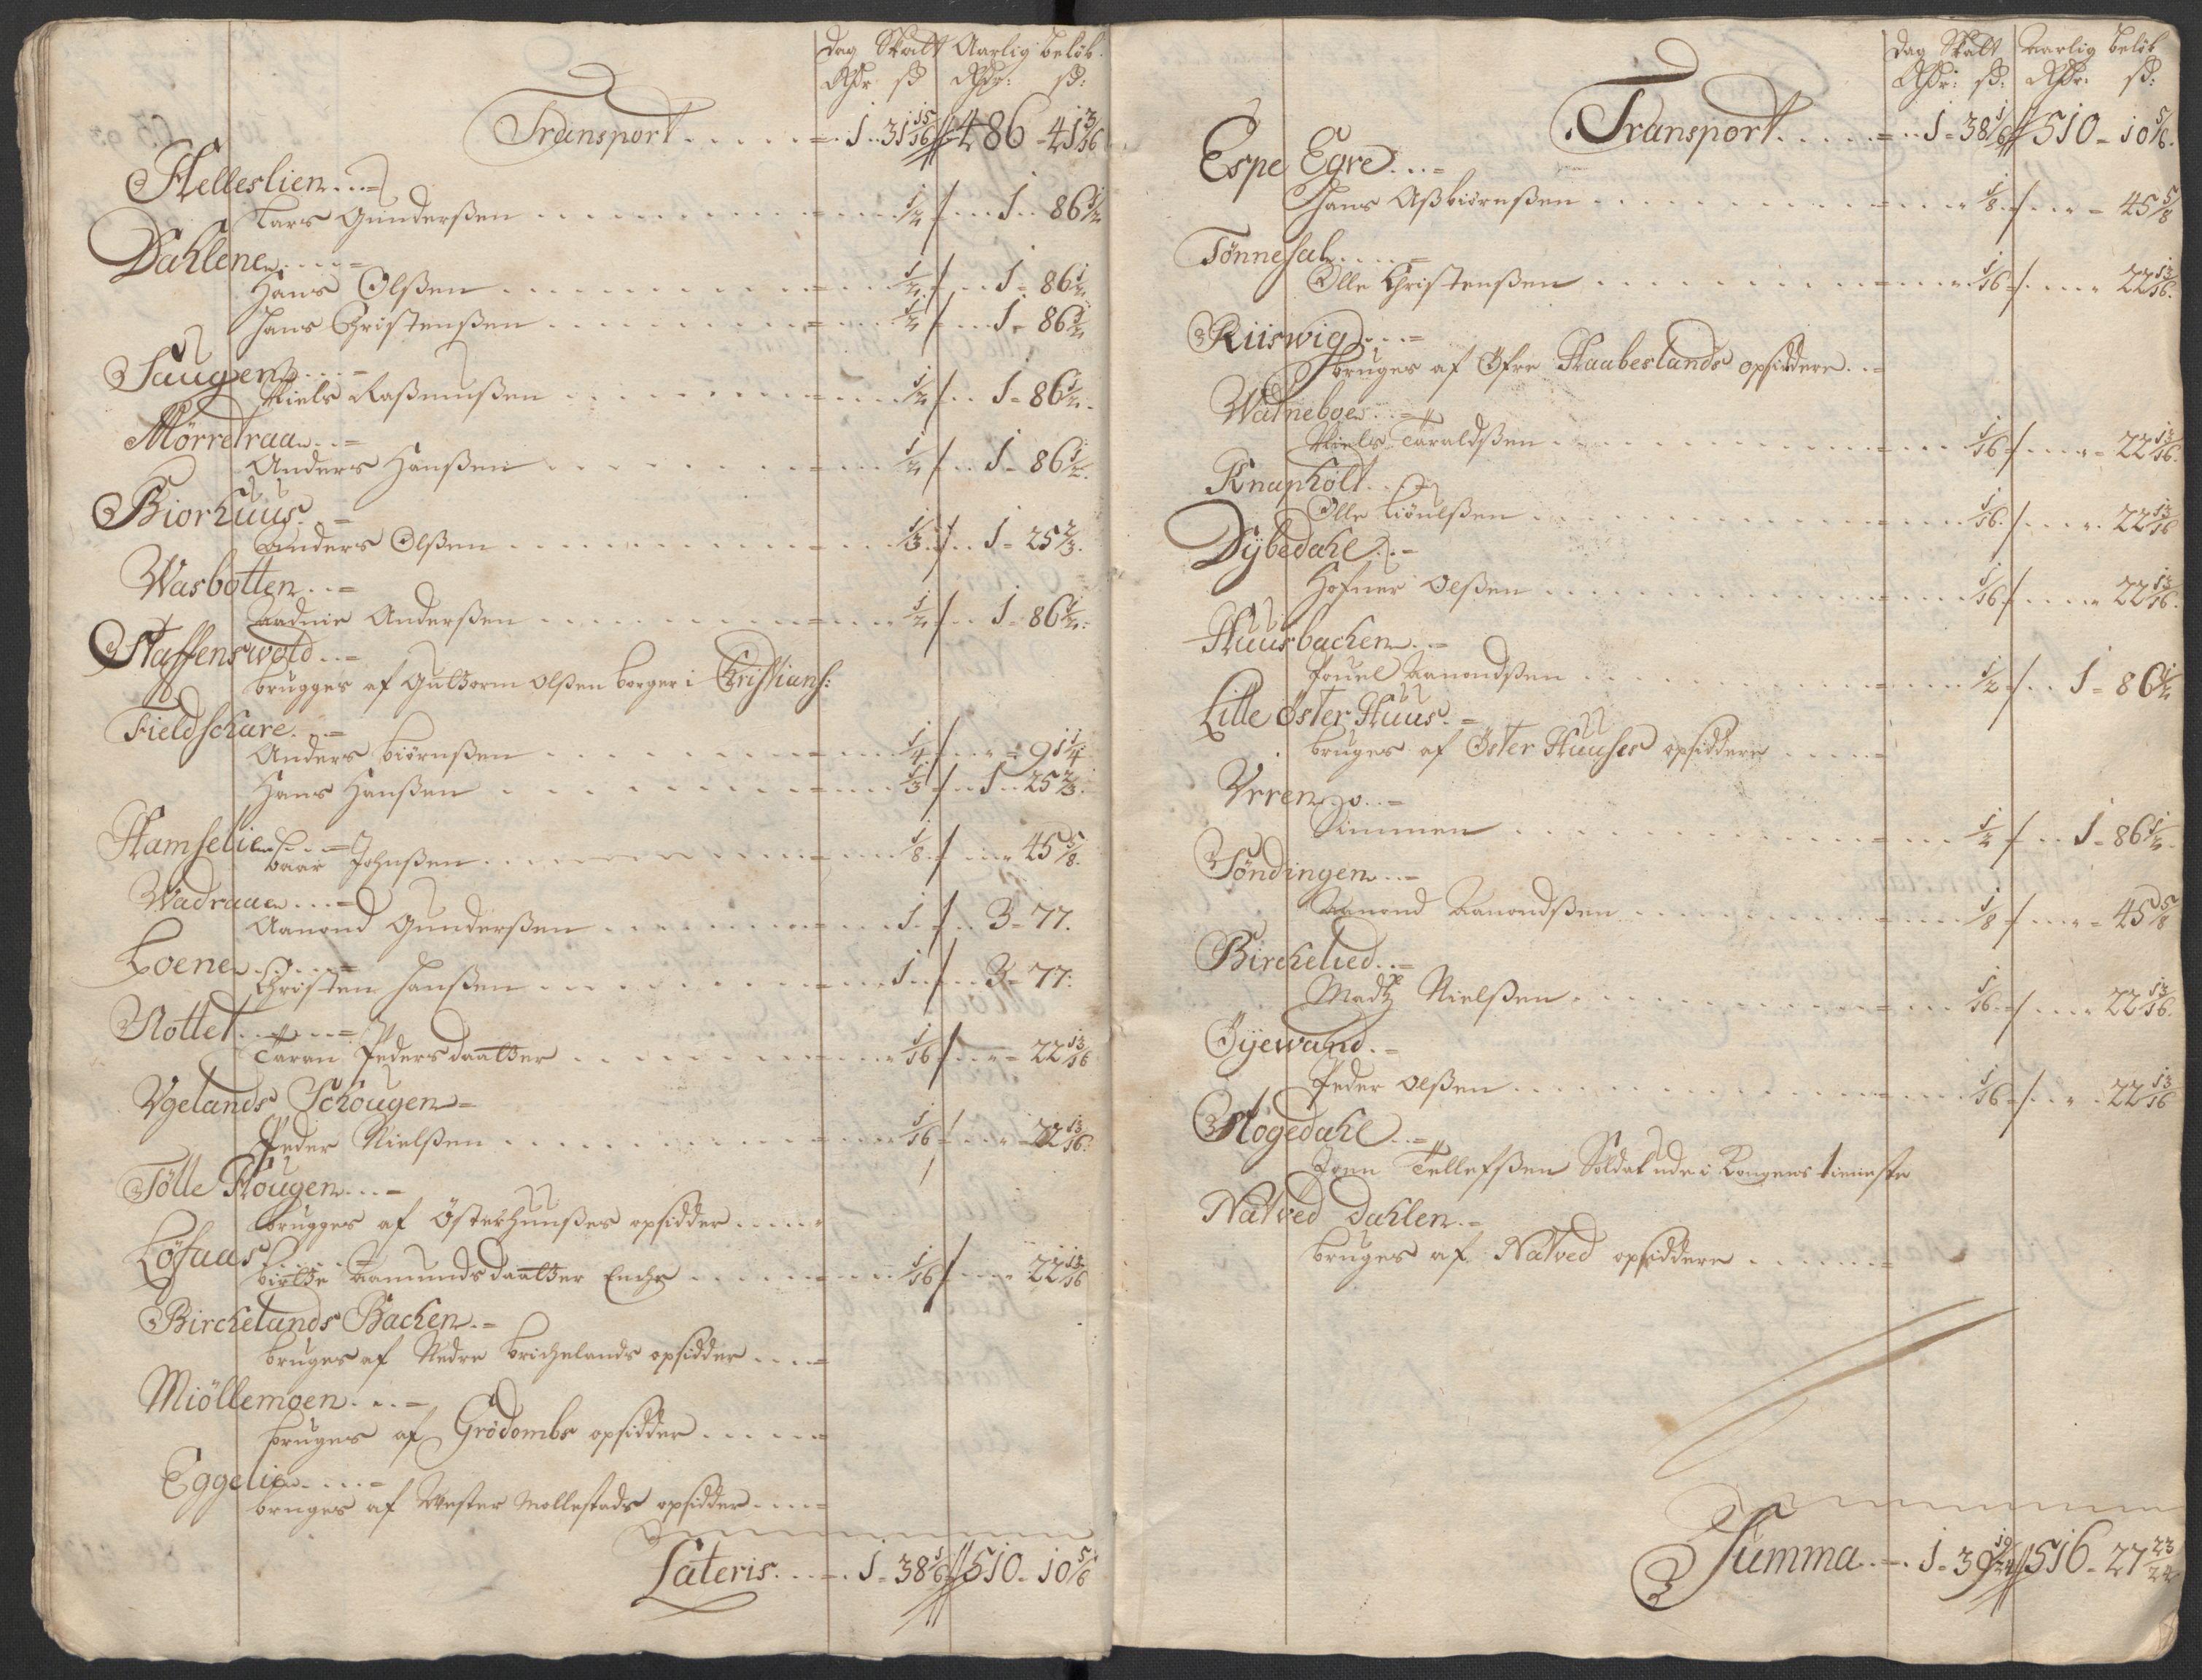 Dag Skatt Aarlig beløb.
Rhdr ß Rhdr: ß:
Transport . . . . . 1 . 31 15/16 486 - 41 3/16
Helleslien . . =
Lars Gunderßen . . . 1/2 1 . 86 1/2
Dahlene . . . =
Hans Olßen . . . 1/2 1 = 86 1/2
Hans Christenßen . . . 1/2 1 . 86 1/2
Haugen . . . =
Niels Raßmußen . . . 1/2 1 = 86 1/2.
Mørretraa . . =
Anders Hanßen . . . 1/2 1 = 86 1/2.
Biorhuus . =
Anders Olßen . . . 1/3 1 = 25 2/3.
Wasbotten . . =
Aadnie Anderßen . . . 1/2 1 = 86 1/2:
Staffenswold . . =
brugges af Guttorm Olßen borger i Christians:
Fieldschare . . =
Anders biørnßen . . . 1/4 = 91 1/4
Hans Hanßen . . . 1/3 1 . 25 2/3.
Hamselien . . . =
baar Johnßen . . . 1/8 45 5/8.
Wadraae . . . =
Aanond Gunderßen . . . 1 3 = 77.
Loene . . . =
Christen Hanßen . . . 1 3 = 77:
Nottet . . . =
Taran Pedersdaatter . . . 1/16 = 22 13/16
Vgelands Schougen =
Peder Nielßen . . . 1/16 = 22 13/16:
Tölle Hougen . . . =
brugges af Österhuußes opsidder . . . .
Löfaas . . . =
birthe Aamundsdaatter Enche . . . 1/16 22 13/16
Birchelands Bachen . =
bruges af Nedre brichelands opsidder . . . =
Miöllemoen . . . =
bruges af Grödombs opsidder . . . =
Eggelie . . . =
bruges af Wester Mollestads opsidder . . . =
Lateris . . = . 1 = 38 1/6 510 - 10 5/6
Dag Skatt Aarlig beløb
Rhdr: ß: Rhdr: ß:
Transport . . . . . = . . 1 = 38 1/6 510 = 10 5/6.
Espe Egre . . . =
Hans Aßbiørnßen . . . 1/8 = 45 5/8
Tønnesal . . . =
Olle Christenßen . . . 1/16 22 13/16.
Riiswig . . . =
bruges af Øfre Haabeslands opsiddere . . =
Watneboe . . =
Niels Taraldßen . . . 1/16 = 22 13/16.
Knapholt . . =
Olle Liöulßen . . . 1/16 . 22 13/16
Dybedahl . . =
Hofner Olßen . . . 1/16 22 13/16.
Huusbachen . . =
Pouel Aanondßen . . . 1/2 1 = 86 1/2
Lille Öster Huus . =
bruges af Öster Huuses opsiddere . . . . =
Vrren . . . =
Simmen . . . 1/2 1 = 86 1/2.
Töndingen . . =
Aanond Aanondßen . . . 1/8 = 45 5/8
Birchelied . . =
Madtz Nielßen . . . 1/16 22 13/16.
Øyewand . =
Peder Olßen . . . 1/16 . 22 13/16
Stogedahl . . =
Joen Tellefßen Soldat ude i Kongens tieneste
Natved Dahlen . =
bruges af Natved opsiddere . . . . =
Summa . . = . 1 = 39 19/24 516 = 27 23/24